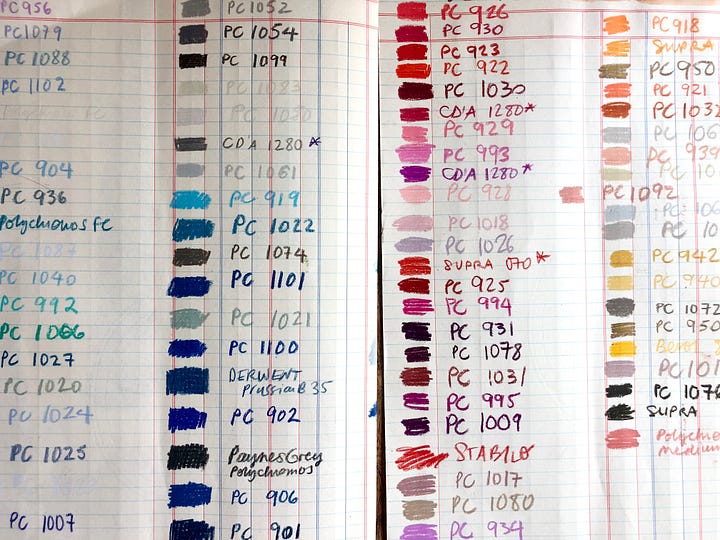 PC 956
PC 1079
PC 1088
PC 1102
PC 904
PC 936
Polychromos FC
PC 1087
PC 1040
PC 992
PC 1006
PC 1027
PC 1020
PC 1024
PC 1025
PC 1007
PC 1052
PC 1054
PC 1099
PC 1083
CD'A 1280*
PC 1061
PC 919
PC 1022
PC 1074
PC 1101
PC 1021
PC 1100
DERWENT
PrussianB 35
PC 902
Paynes Grey
Polychromos
PC 906
PC 901
PC 926
PC 930
PC 923
PC 922
PC 1030
CD'A 1280*
PC 929
PC 993
CD'A 1280*
PC 928
PC 1018
PC 1026
SUPRA 070*
PC 925
PC 994
PC 931
PC 1078
PC 1031
PC 995
PC 1009
STABILO
PC 1017
PC 1080
PC 934
PC 918
SUPRA
PC 950
PC 921
PC 1032
PC 106
PC 939
PC 10
PC 1092
PC 10
PC 942
PC 940
PC 1072
PC 950
PC 101
PC 1076
SUPRA